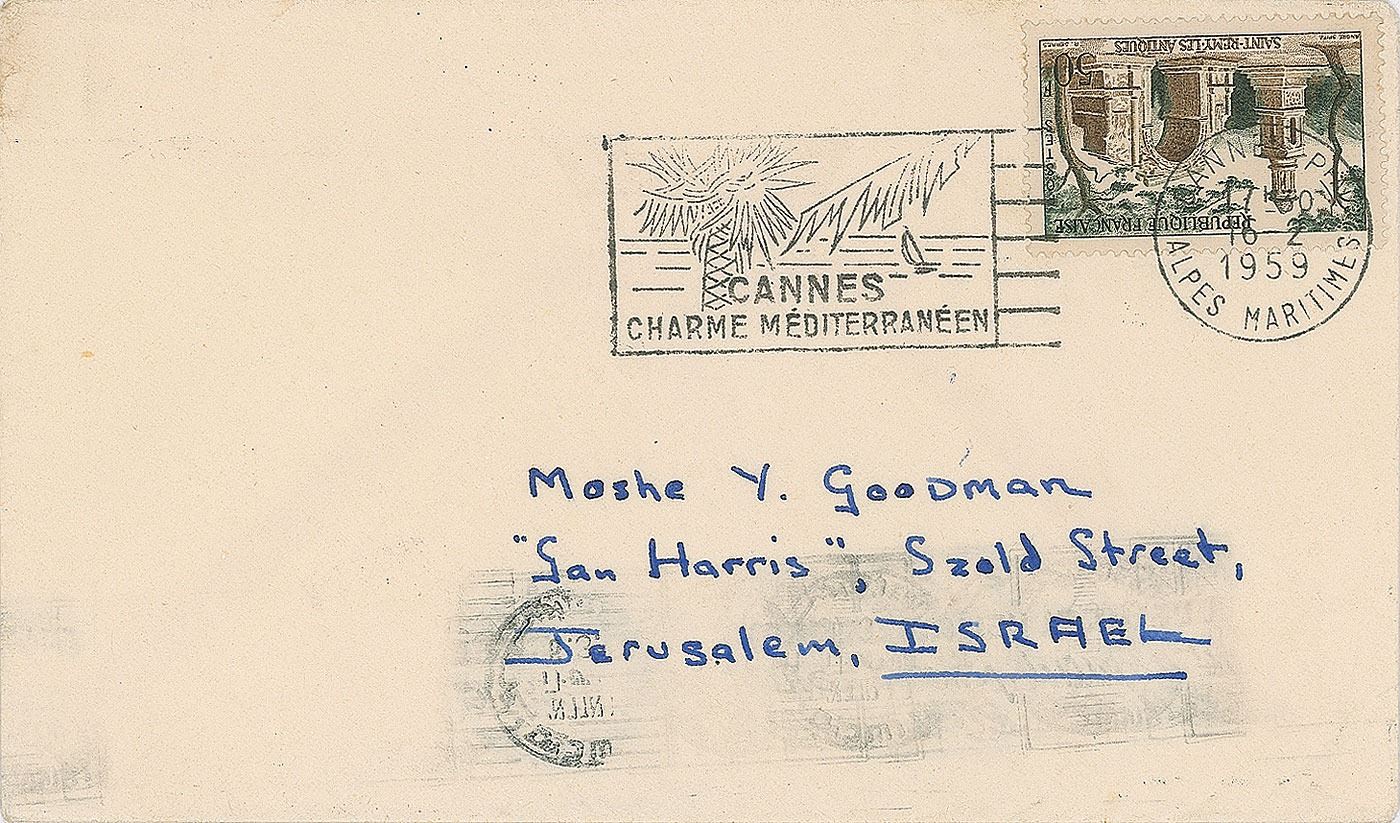 SAINT-REMY-LES ANTIQUES
50
REPUBLIQUE FRANÇAISE
17H30
16 2
1959
ALPES MARITIMES
CANNES
CHARME MÉDITERRANÉEN
Moshe Y. Goodman
"Gan Harris", Szold Street,
Jerusalem, ISRAEL